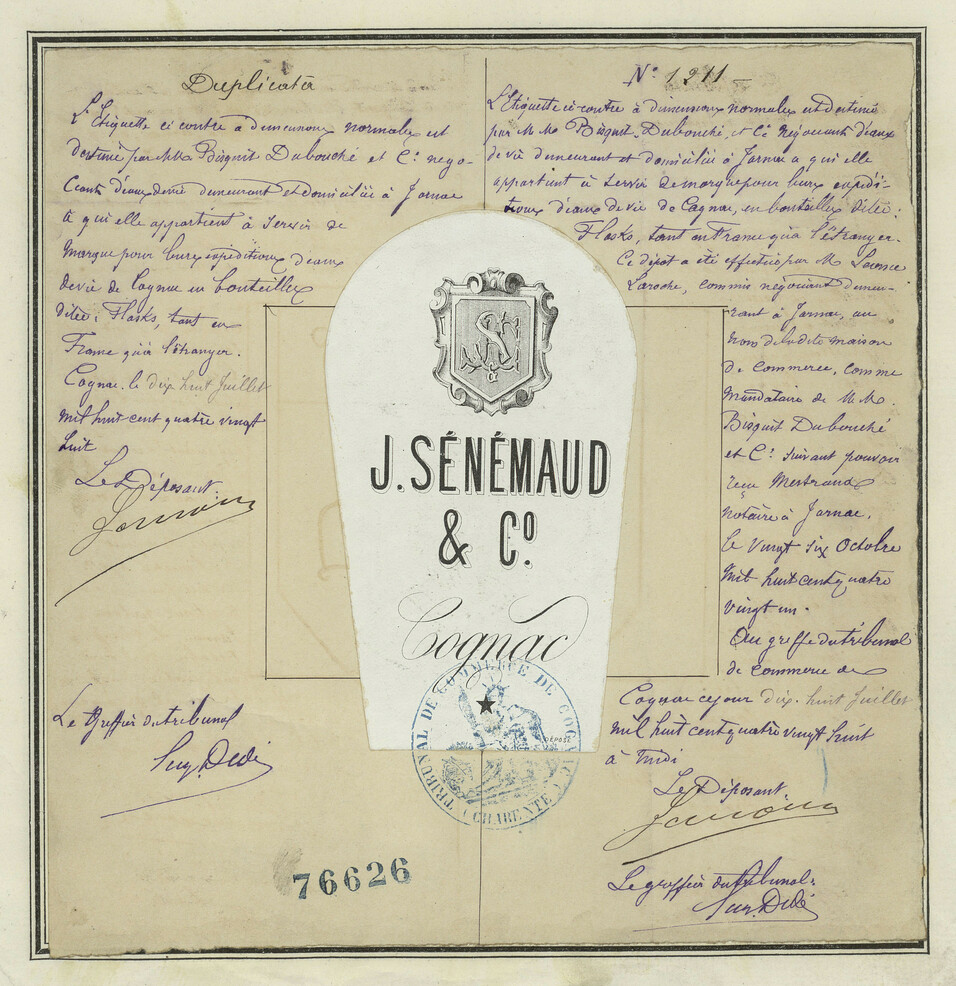 Duplicata
L'Etiquette ci contre à dimensions normales est
destiné par MM Bisquit Dubouché et Cie. nego-
ciants d'eaux de vie demeurant et domiciliés à Jarnac
à qui elle appartient à servir de
marque pour leurs expéditions d'eaux
de vie de Cognac en bouteilles
dites: Flasks, tant en
France qu'à l'étranger.
Cognac. le dix huit Juillet
mil huit cent quatre vingt
huit
Le Déposant:
Le Greffier du tribunal
N° 1211
L'Etiquette ci contre à dimensions normales est destiné
par M M. Bisquit, Dubouché, et Cie Négociants d'eaux
de vie demeurant et domiciliés à Jarnac a qui elle
appartient à servir de marque pour leurs expédi-
tions d'eaux de vie de Cognac, en bouteilles dites:
Flasks, tant en France qu'à l'étranger.
Ce dépôt a été effectué par M
Laroche, commis négociant demeu-
rant à Jarnac, au
nom de la dite maison
de commerce, comme
mandataire de M M.
Bisquit Dubouché
et Cie. suivant pouvoir
reçu
notaire à Jarnac.
le vingt six Octobre
mil huit cent quatre
vingt un.
Au greffe du tribunal
de commerce de
Cognac ce jour dix huit Juillet
mil huit cent quatre vingt huit
à midi
Le Déposant:
Le greffier du tribunal:
J. SÉNÉMAUD
& Co.
Cognac
DÉPOSÉ
TRIBUNAL DE COMMERCE DE COGNAC
(CHARENTE)
76626